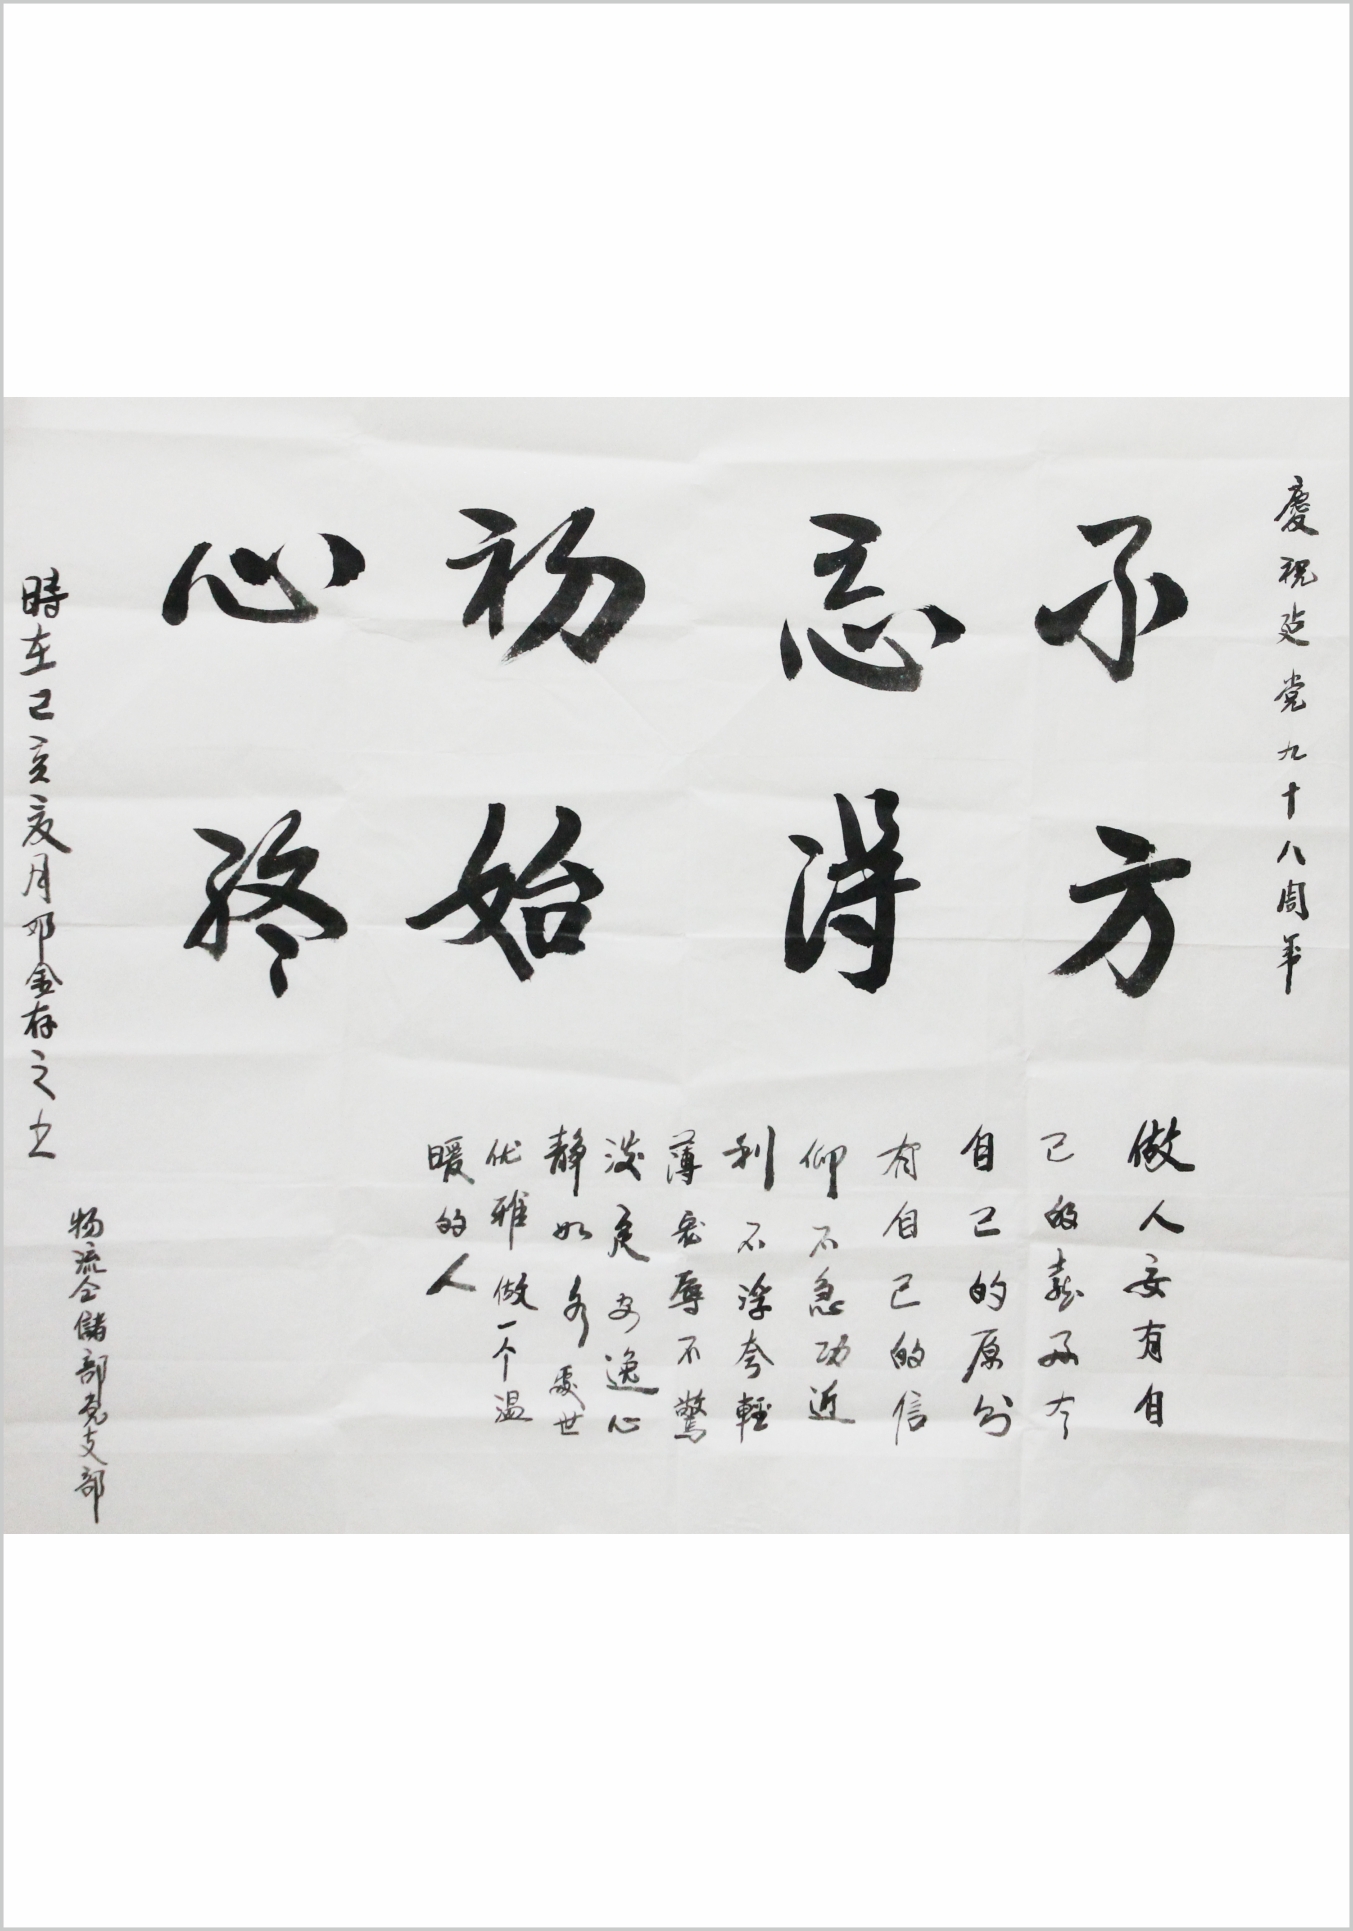 慶祝建党九十八周年
不忘初心
方得始終
做人要有自
己的喜好有
自己的原則
有自己的信
仰不急功近
利不浮夸輕
薄寵辱不驚
淡定安逸心
静如水處世
优雅做一个温
暖的人
時在己亥夏月邓金存之书
物流仓儲部党支部